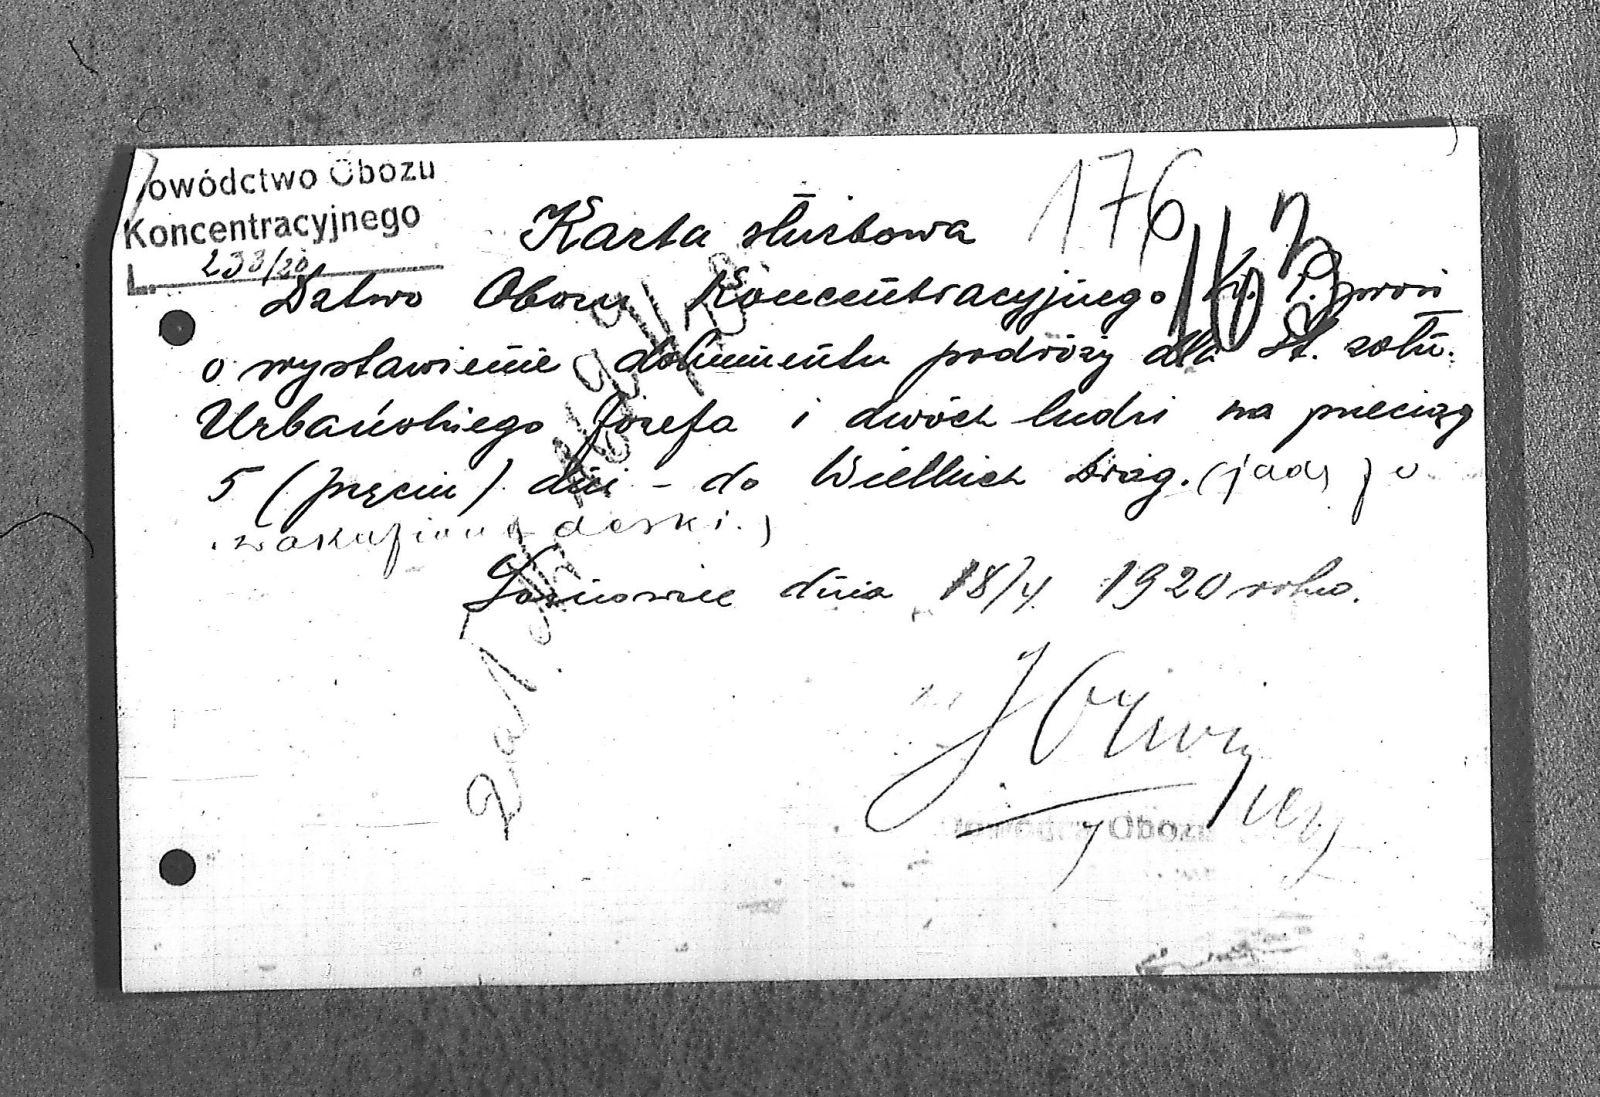 Dowództwo Obozu
Koncentracyjnego
L. 233/20
176
Karta służbowa
163
Dztwo Obozu Koncentracyjnego Kp. P. prosi
o wystawienie dokumentu podróży dla St. żołn.
Urbańskiego Józefa i dwóch ludzi na przeciąg
5 (pięciu) dni - do Wielkich Dróg. (jadą po
zakupione deski.)
dnia 18/4 1920 roku.
Zał.
Dowódca Obozu